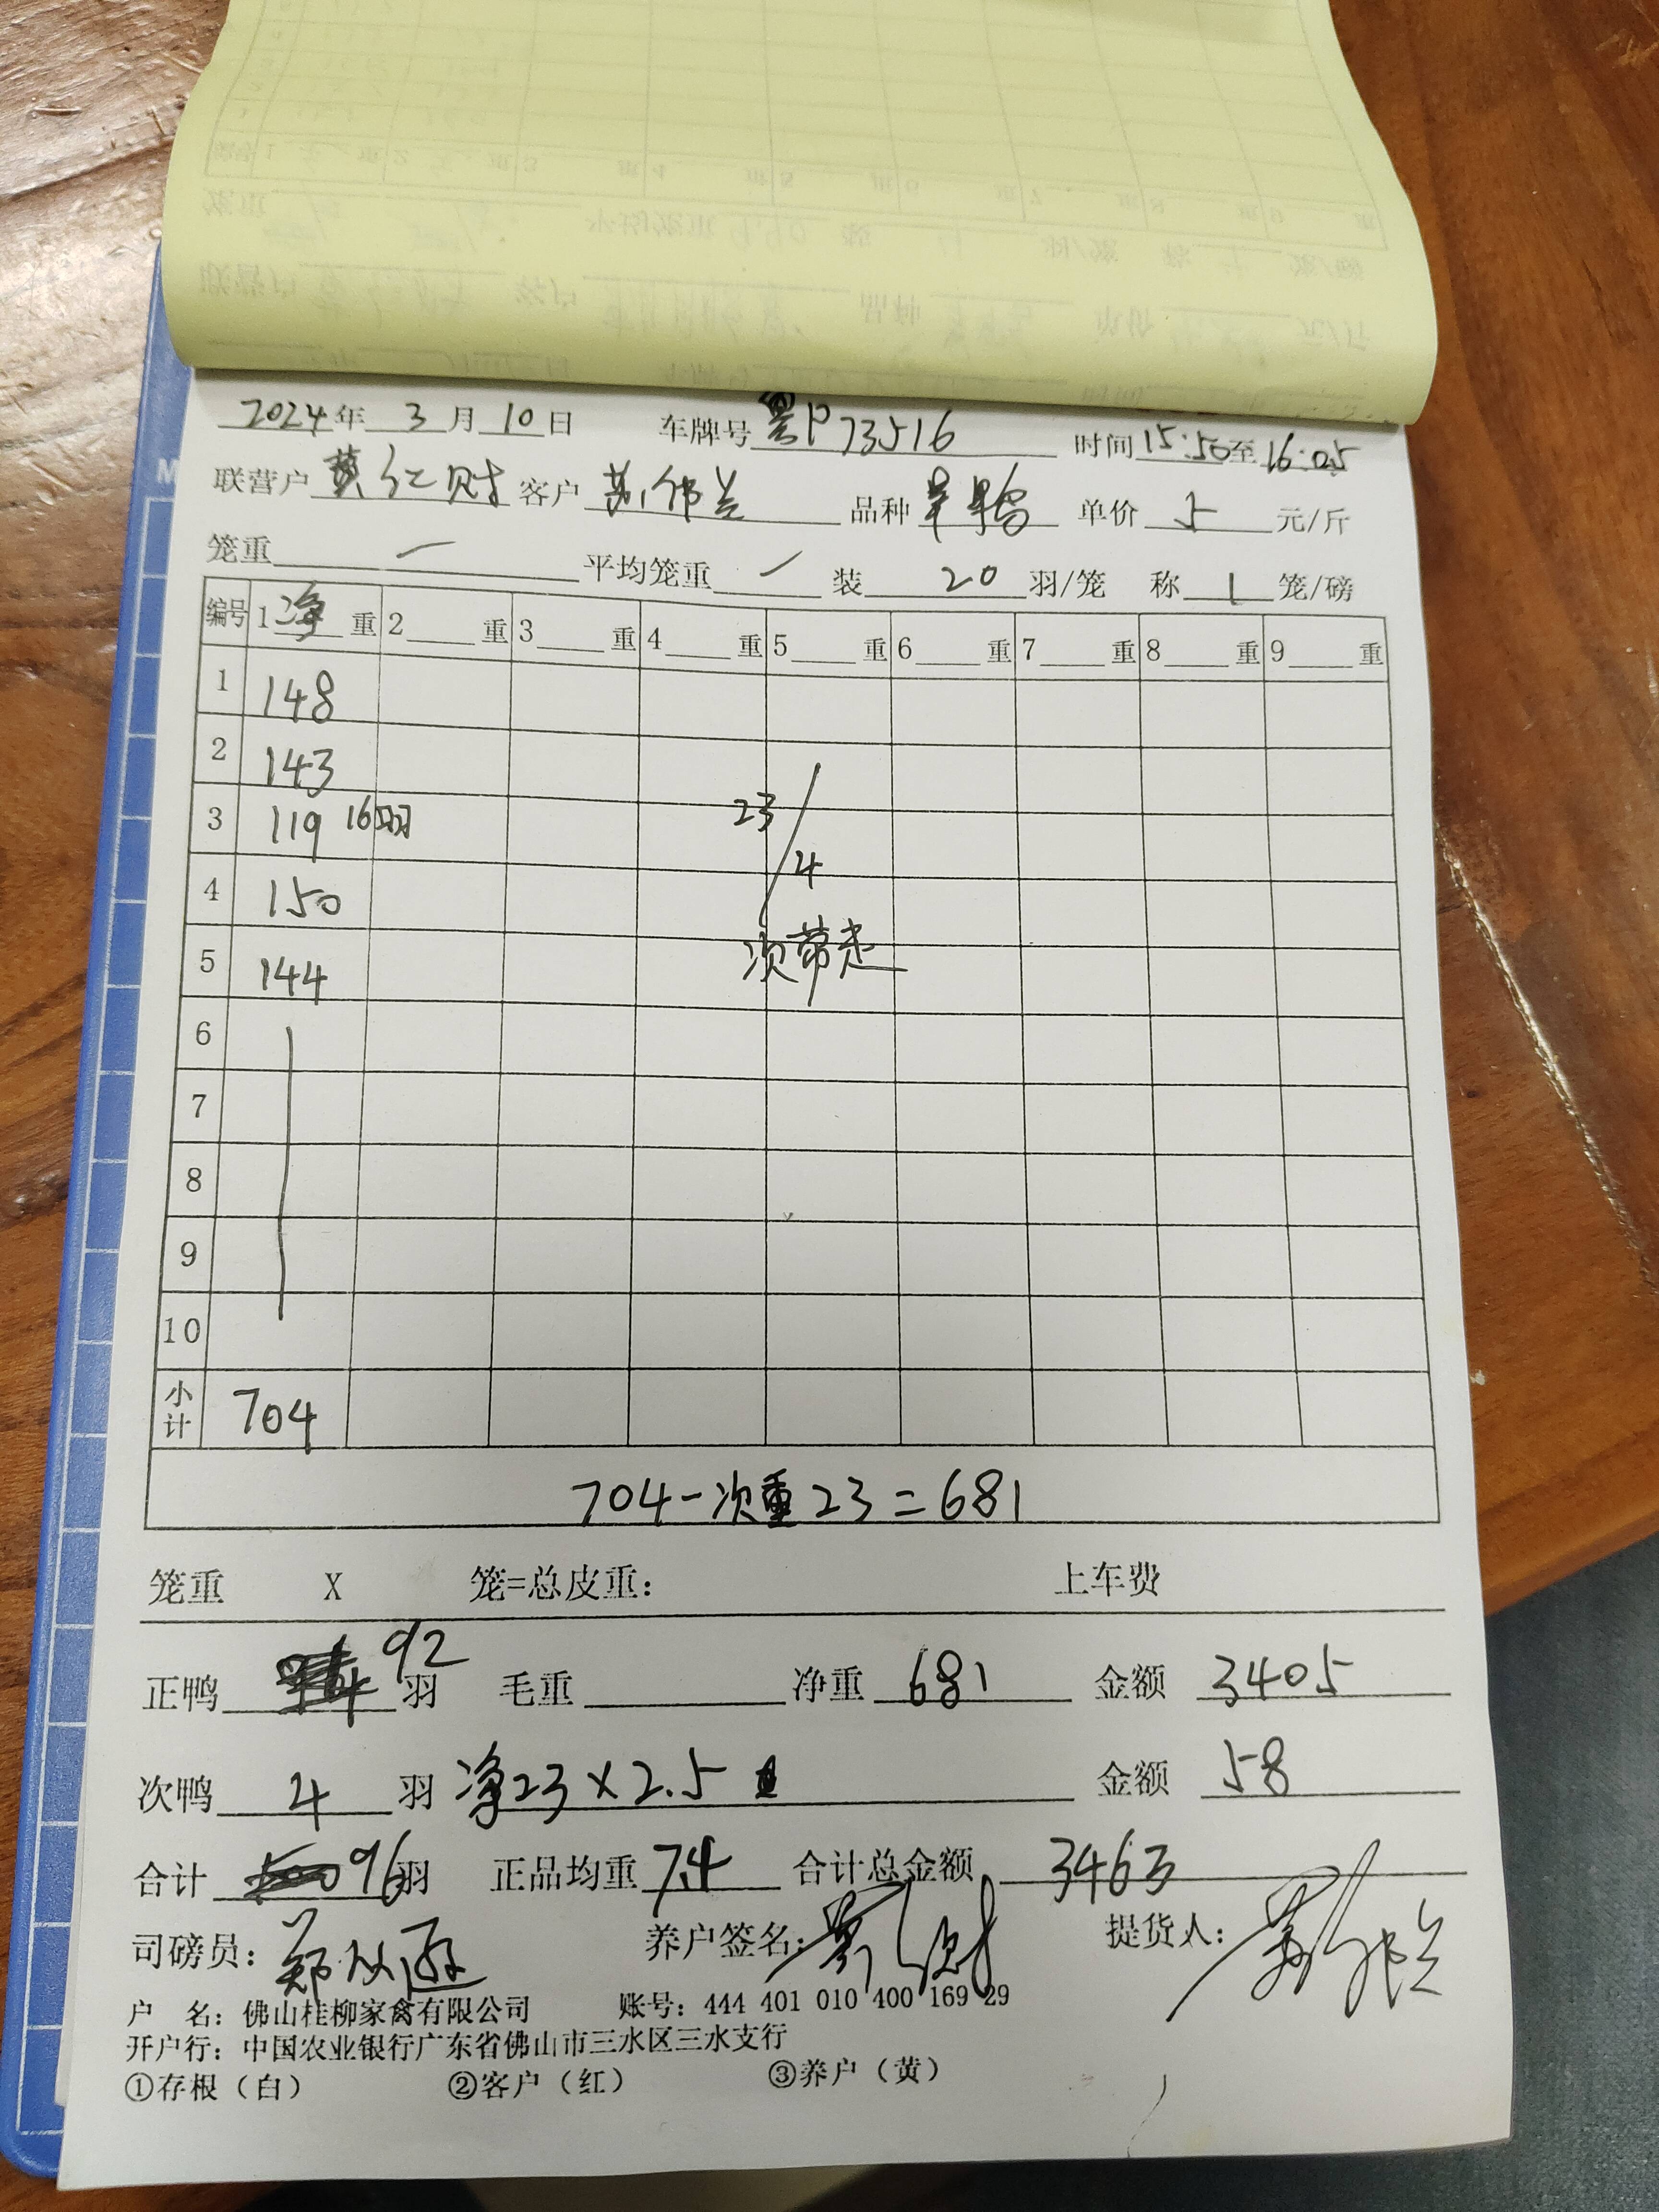 2024年 3月10日 车牌号 粤P73516 时间15:50至16:05
联营户 黄仁财 客户 苏伟兰 品种 单价 5 元/斤
笼重 一 平均笼重 / 装 20 羽/笼 称 1 笼/磅
编号 1净重 2 重 3 重 4 重 5 重 6 重 7 重 8 重 9 重
1 148
2 143
3 119 16羽 23/4
4 150
5 144 次带走
6
7
8
9
10
小计 704
704-次重23=681
笼重 X 笼=总皮重: 上车费
正鸭 92 羽 毛重 净重 681 金额 3405
次鸭 4 羽 净23×2.5 金额 58
合计 96羽 正品均重 7.4 合计总金额 3463
司磅员: 养户签名: 提货人:
户 名: 佛山桂柳家禽有限公司 账号: 444 401 010 400 169 29
开户行: 中国农业银行广东省佛山市三水区三水支行
①存根(白) ②客户(红) ③养户(黄)